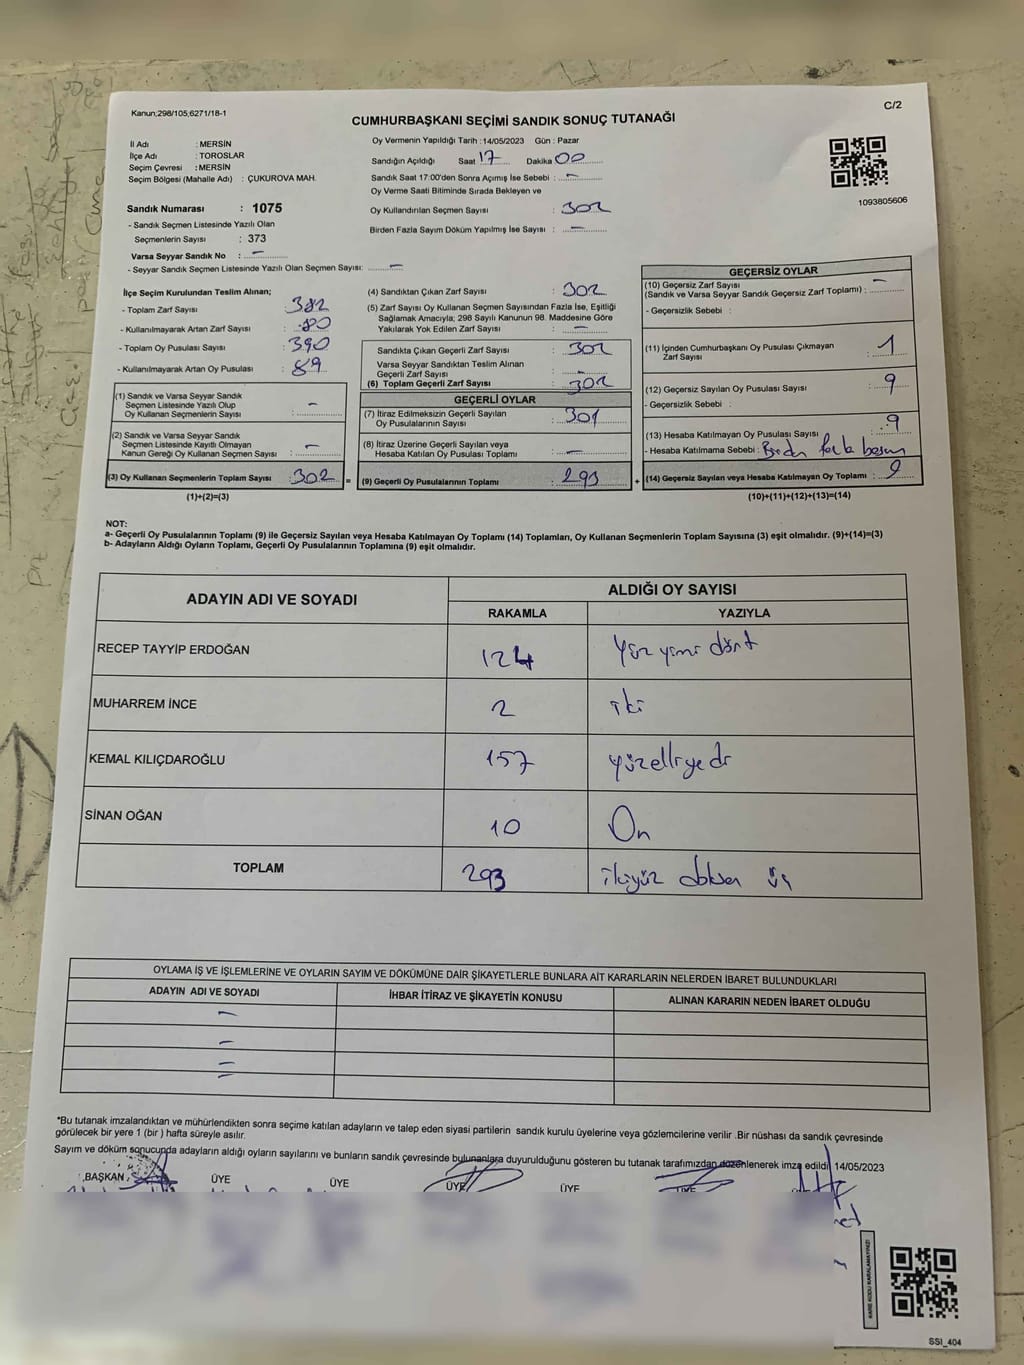 Kanun;298/105,6271/18-1
C/2
CUMHURBAŞKANI SEÇİMİ SANDIK SONUÇ TUTANAĞI
İl Adı : MERSİN
İlçe Adı : TOROSLAR
Seçim Çevresi : MERSİN
Seçim Bölgesi (Mahalle Adı) : ÇUKUROVA MAH.
Sandık Numarası : 1075
- Sandık Seçmen Listesinde Yazılı Olan
Seçmenlerin Sayısı : 373
Varsa Seyyar Sandık No : -
- Seyyar Sandık Seçmen Listesinde Yazılı Olan Seçmen Sayısı: -
Oy Vermenin Yapıldığı Tarih :14/05/2023 Gün : Pazar
Sandığın Açıldığı Saat 17 Dakika 00
Sandık Saat 17:00'den Sonra Açımış İse Sebebi : -
Oy Verme Saati Bitiminde Sırada Bekleyen ve
Oy Kullandırılan Seçmen Sayısı : 302
Birden Fazla Sayım Döküm Yapılmış İse Sayısı : -
1093805606
İlçe Seçim Kurulundan Teslim Alınan;
- Toplam Zarf Sayısı : 382
- Kullanılmayarak Artan Zarf Sayısı : 80
- Toplam Oy Pusulası Sayısı : 390
- Kullanılmayarak Artan Oy Pusulası : 89
(1) Sandık ve Varsa Seyyar Sandık
Seçmen Listesinde Yazılı Olup
Oy Kullanan Seçmenlerin Sayısı : -
(2) Sandık ve Varsa Seyyar Sandık
Seçmen Listesinde Kayıtlı Olmayan
Kanun Gereği Oy Kullanan Seçmen Sayısı : -
(3) Oy Kullanan Seçmenlerin Toplam Sayısı : 302
(1)+(2)=(3)
(4) Sandıktan Çıkan Zarf Sayısı : 302
(5) Zarf Sayısı Oy Kullanan Seçmen Sayısından Fazla İse, Eşitliği
Sağlamak Amacıyla; 298 Sayılı Kanunun 98. Maddesine Göre
Yakılarak Yok Edilen Zarf Sayısı : -
Sandıkta Çıkan Geçerli Zarf Sayısı : 302
Varsa Seyyar Sandıktan Teslim Alınan
Geçerli Zarf Sayısı : -
(6) Toplam Geçerli Zarf Sayısı : 302
GEÇERLİ OYLAR
(7) İtiraz Edilmeksizin Geçerli Sayılan
Oy Pusulalarının Sayısı : 301
(8) İtiraz Üzerine Geçerli Sayılan veya
Hesaba Katılan Oy Pusulası Toplamı : -
= (9) Geçerli Oy Pusulalarının Toplamı : 293 +
GEÇERSİZ OYLAR
(10) Geçersiz Zarf Sayısı
(Sandık ve Varsa Seyyar Sandık Geçersiz Zarf Toplamı) : -
- Geçersizlik Sebebi :
(11) İçinden Cumhurbaşkanı Oy Pusulası Çıkmayan
Zarf Sayısı : 1
(12) Geçersiz Sayılan Oy Pusulası Sayısı : 9
- Geçersizlik Sebebi :
(13) Hesaba Katılmayan Oy Pusulası Sayısı : 9
- Hesaba Katılmama Sebebi :
(14) Geçersiz Sayılan veya Hesaba Katılmayan Oy Toplamı : 9
(10)+(11)+(12)+(13)=(14)
NOT:
a- Geçerli Oy Pusulalarının Toplamı (9) ile Geçersiz Sayılan veya Hesaba Katılmayan Oy Toplamı (14) Toplamları, Oy Kullanan Seçmenlerin Toplam Sayısına (3) eşit olmalıdır. (9)+(14)=(3)
b- Adayların Aldığı Oyların Toplamı, Geçerli Oy Pusulalarının Toplamına (9) eşit olmalıdır.
ADAYIN ADI VE SOYADI
ALDIĞI OY SAYISI
RAKAMLA YAZIYLA
RECEP TAYYİP ERDOĞAN 124 Yüz yirmi dört
MUHARREM İNCE 2 iki
KEMAL KILIÇDAROĞLU 157 yüzelliyedi
SİNAN OĞAN 10 On
TOPLAM 293 ikiyüz doksan üç
OYLAMA İŞ VE İŞLEMLERİNE VE OYLARIN SAYIM VE DÖKÜMÜNE DAİR ŞİKAYETLERLE BUNLARA AİT KARARLARIN NELERDEN İBARET BULUNDUKLARI
ADAYIN ADI VE SOYADI İHBAR İTİRAZ VE ŞİKAYETİN KONUSU ALINAN KARARIN NEDEN İBARET OLDUĞU
-
-
-
-
*Bu tutanak imzalandıktan ve mühürlendikten sonra seçime katılan adayların ve talep eden siyasi partilerin sandık kurulu üyelerine veya gözlemcilerine verilir .Bir nüshası da sandık çevresinde
görülecek bir yere 1 (bir ) hafta süreyle asılır.
Sayım ve döküm sonucunda adayların aldığı oyların sayılarını ve bunların sandık çevresinde bulunanlara duyurulduğunu gösteren bu tutanak tarafımızdan düzenlenerek imza edildi. 14/05/2023
BAŞKAN ÜYE ÜYE ÜYE ÜYE ÜYE
KARE KODU KARALAMAYINIZ!
SSI_404